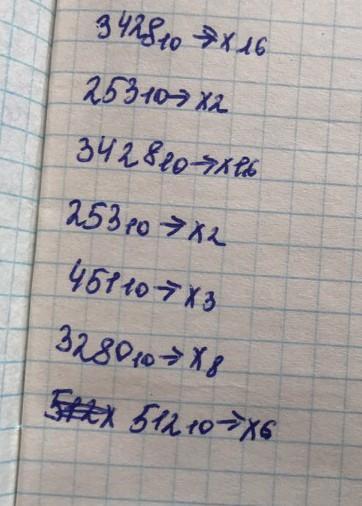 3428₁₀ → x₁₆
253₁₀ → x₂
3428₁₀ → x₁₆
253₁₀ → x₂
451₁₀ → x₃
3280₁₀ → x₈
512x 512₁₀ → x₆